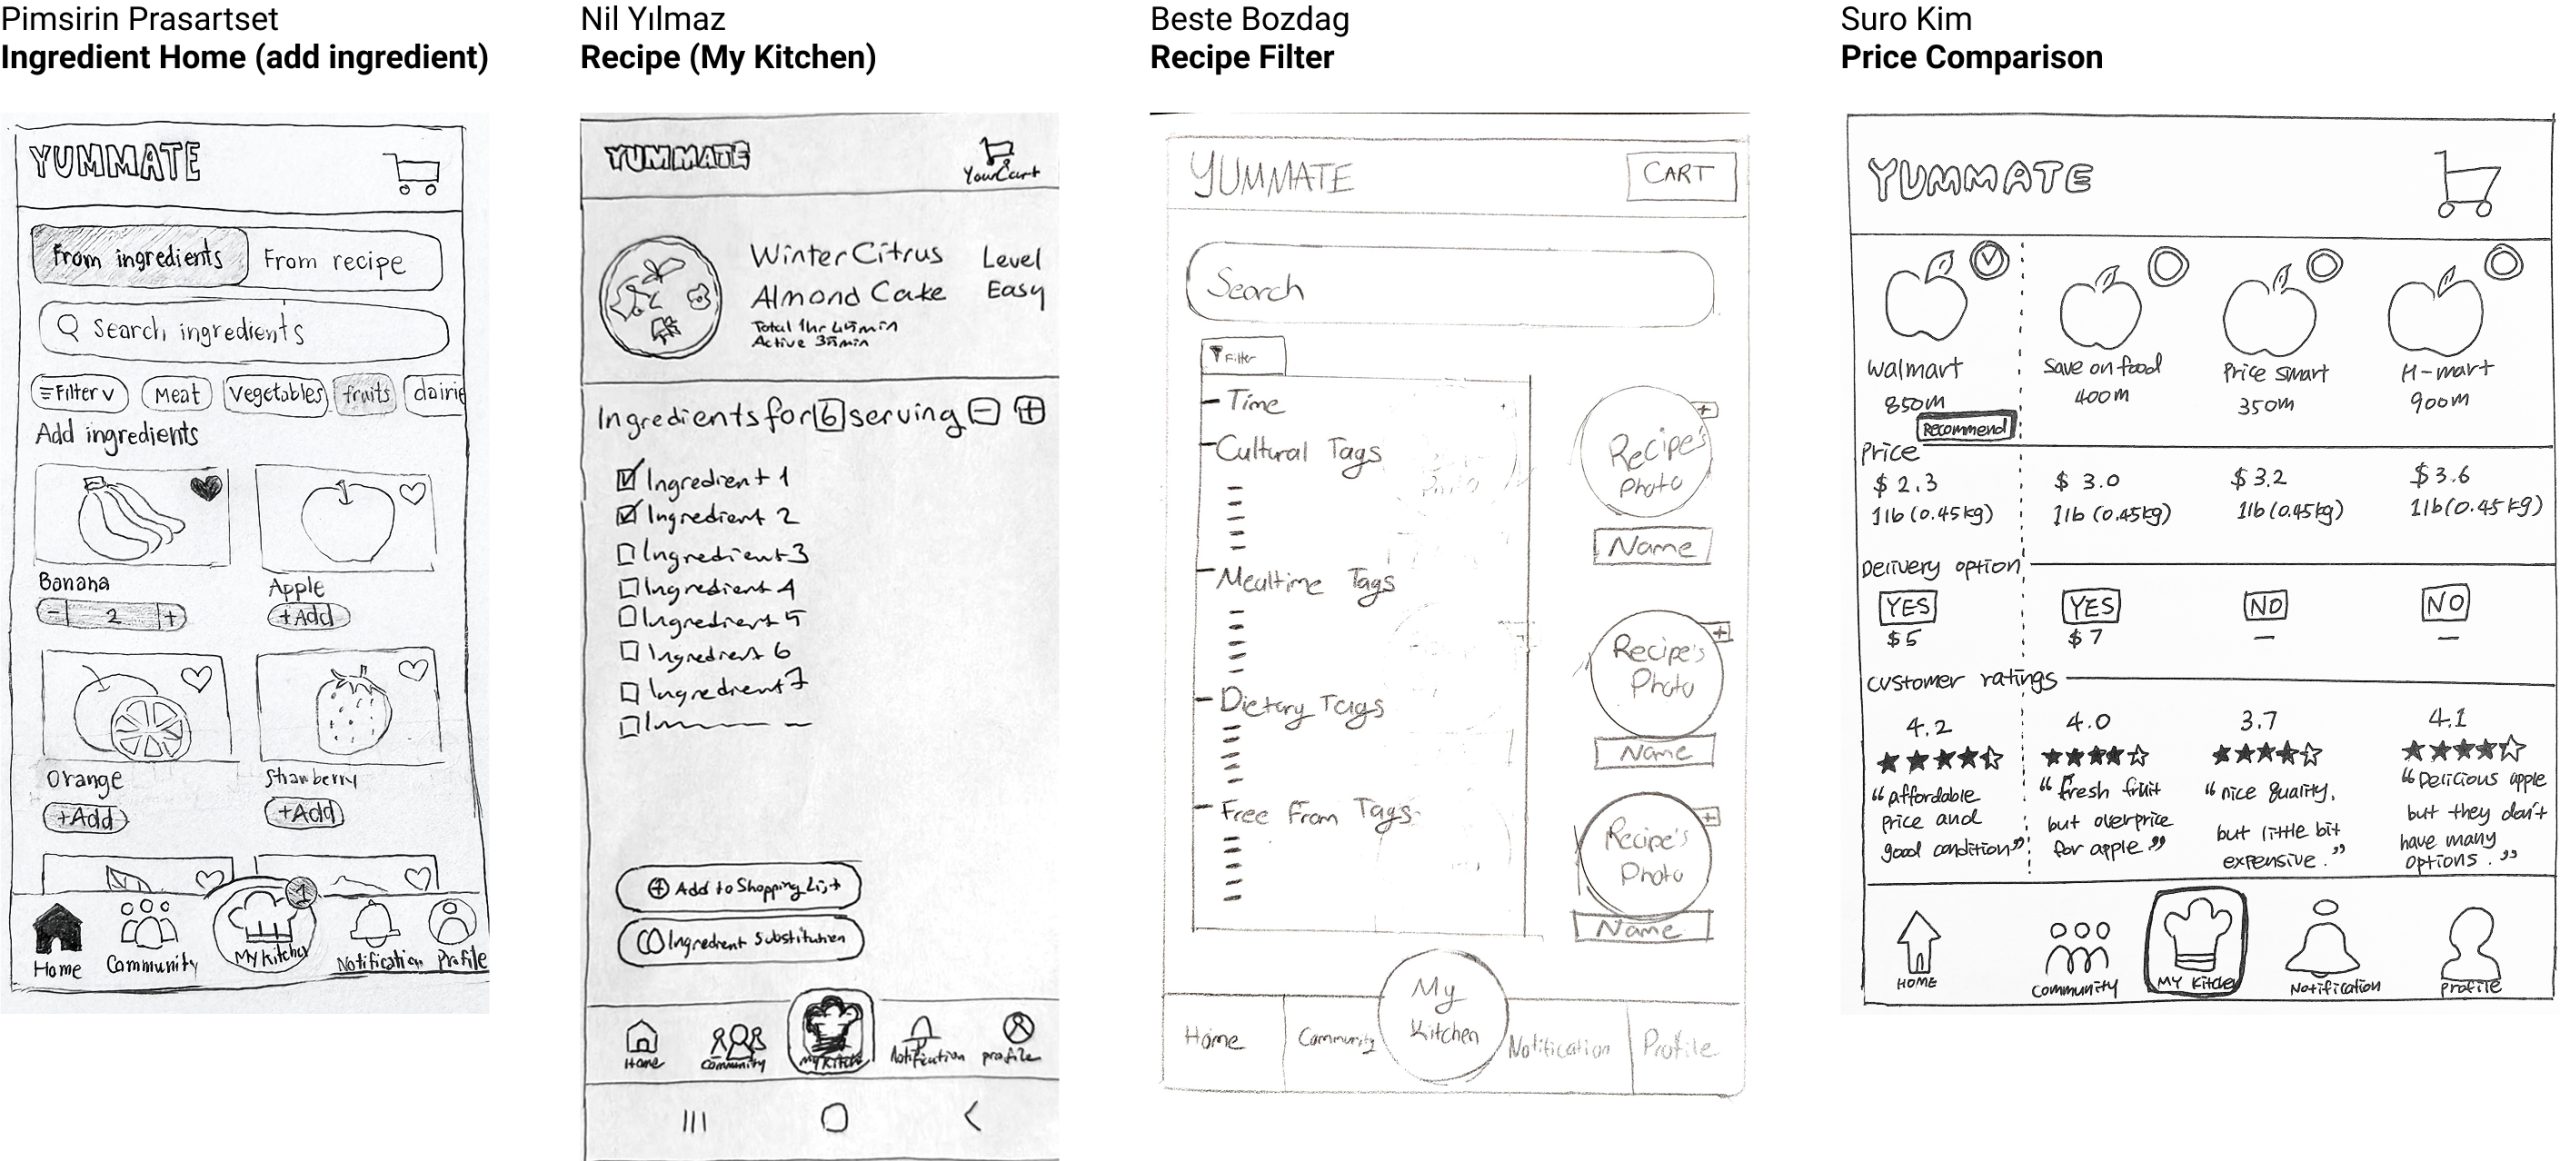 Pimsirin Prasartset
Ingredient Home (add ingredient)
YUMMATE
From ingredients
From recipe
Search ingredients
Filter
Meat
Vegetables
fruits
dairie
Add ingredients
Banana
Apple
- 2 +
+Add
Orange
Strawberry
+Add
+Add
1
Home
Community
My kitchen
Notification
Profile
Nil Yılmaz
Recipe (My Kitchen)
YUMMATE
Your Cart
Winter Citrus
Almond Cake
Level
Easy
Total 1hr 45min
Active 35min
Ingredients for 6 serving - +
Ingredient 1
Ingredient 2
Ingredient 3
Ingredient 4
Ingredient 5
Ingredient 6
Ingredient 7
+ Add to Shopping List
Ingredient Substitution
Home
Community
My Kitchen
Notification
profile
Beste Bozdag
Recipe Filter
YUMMATE
CART
Search
Filter
Time
Cultural Tags
Mealtime Tags
Dietary Tags
Free From Tags
+
Recipe's
Photo
Name
+
Recipe's
Photo
Name
+
Recipe's
Photo
Name
Home
Community
My
Kitchen
Notification
Profile
Suro Kim
Price Comparison
YUMMATE
Walmart
850m
Recommend
Save on food
400m
Price smart
350m
H-mart
900m
Price
$ 2.3
1lb (0.45kg)
$ 3.0
1lb (0.45kg)
$ 3.2
1lb (0.45kg)
$ 3.6
1lb (0.45kg)
Delivery option
YES
$5
YES
$7
NO
—
NO
—
customer ratings
4.2
"affordable
price and
good condition"
4.0
"fresh fruit
but overprice
for apple"
3.7
"nice quality,
but little bit
expensive."
4.1
"Delicious apple
but they don't
have many
options."
HOME
Community
MY Kitchen
Notification
profile